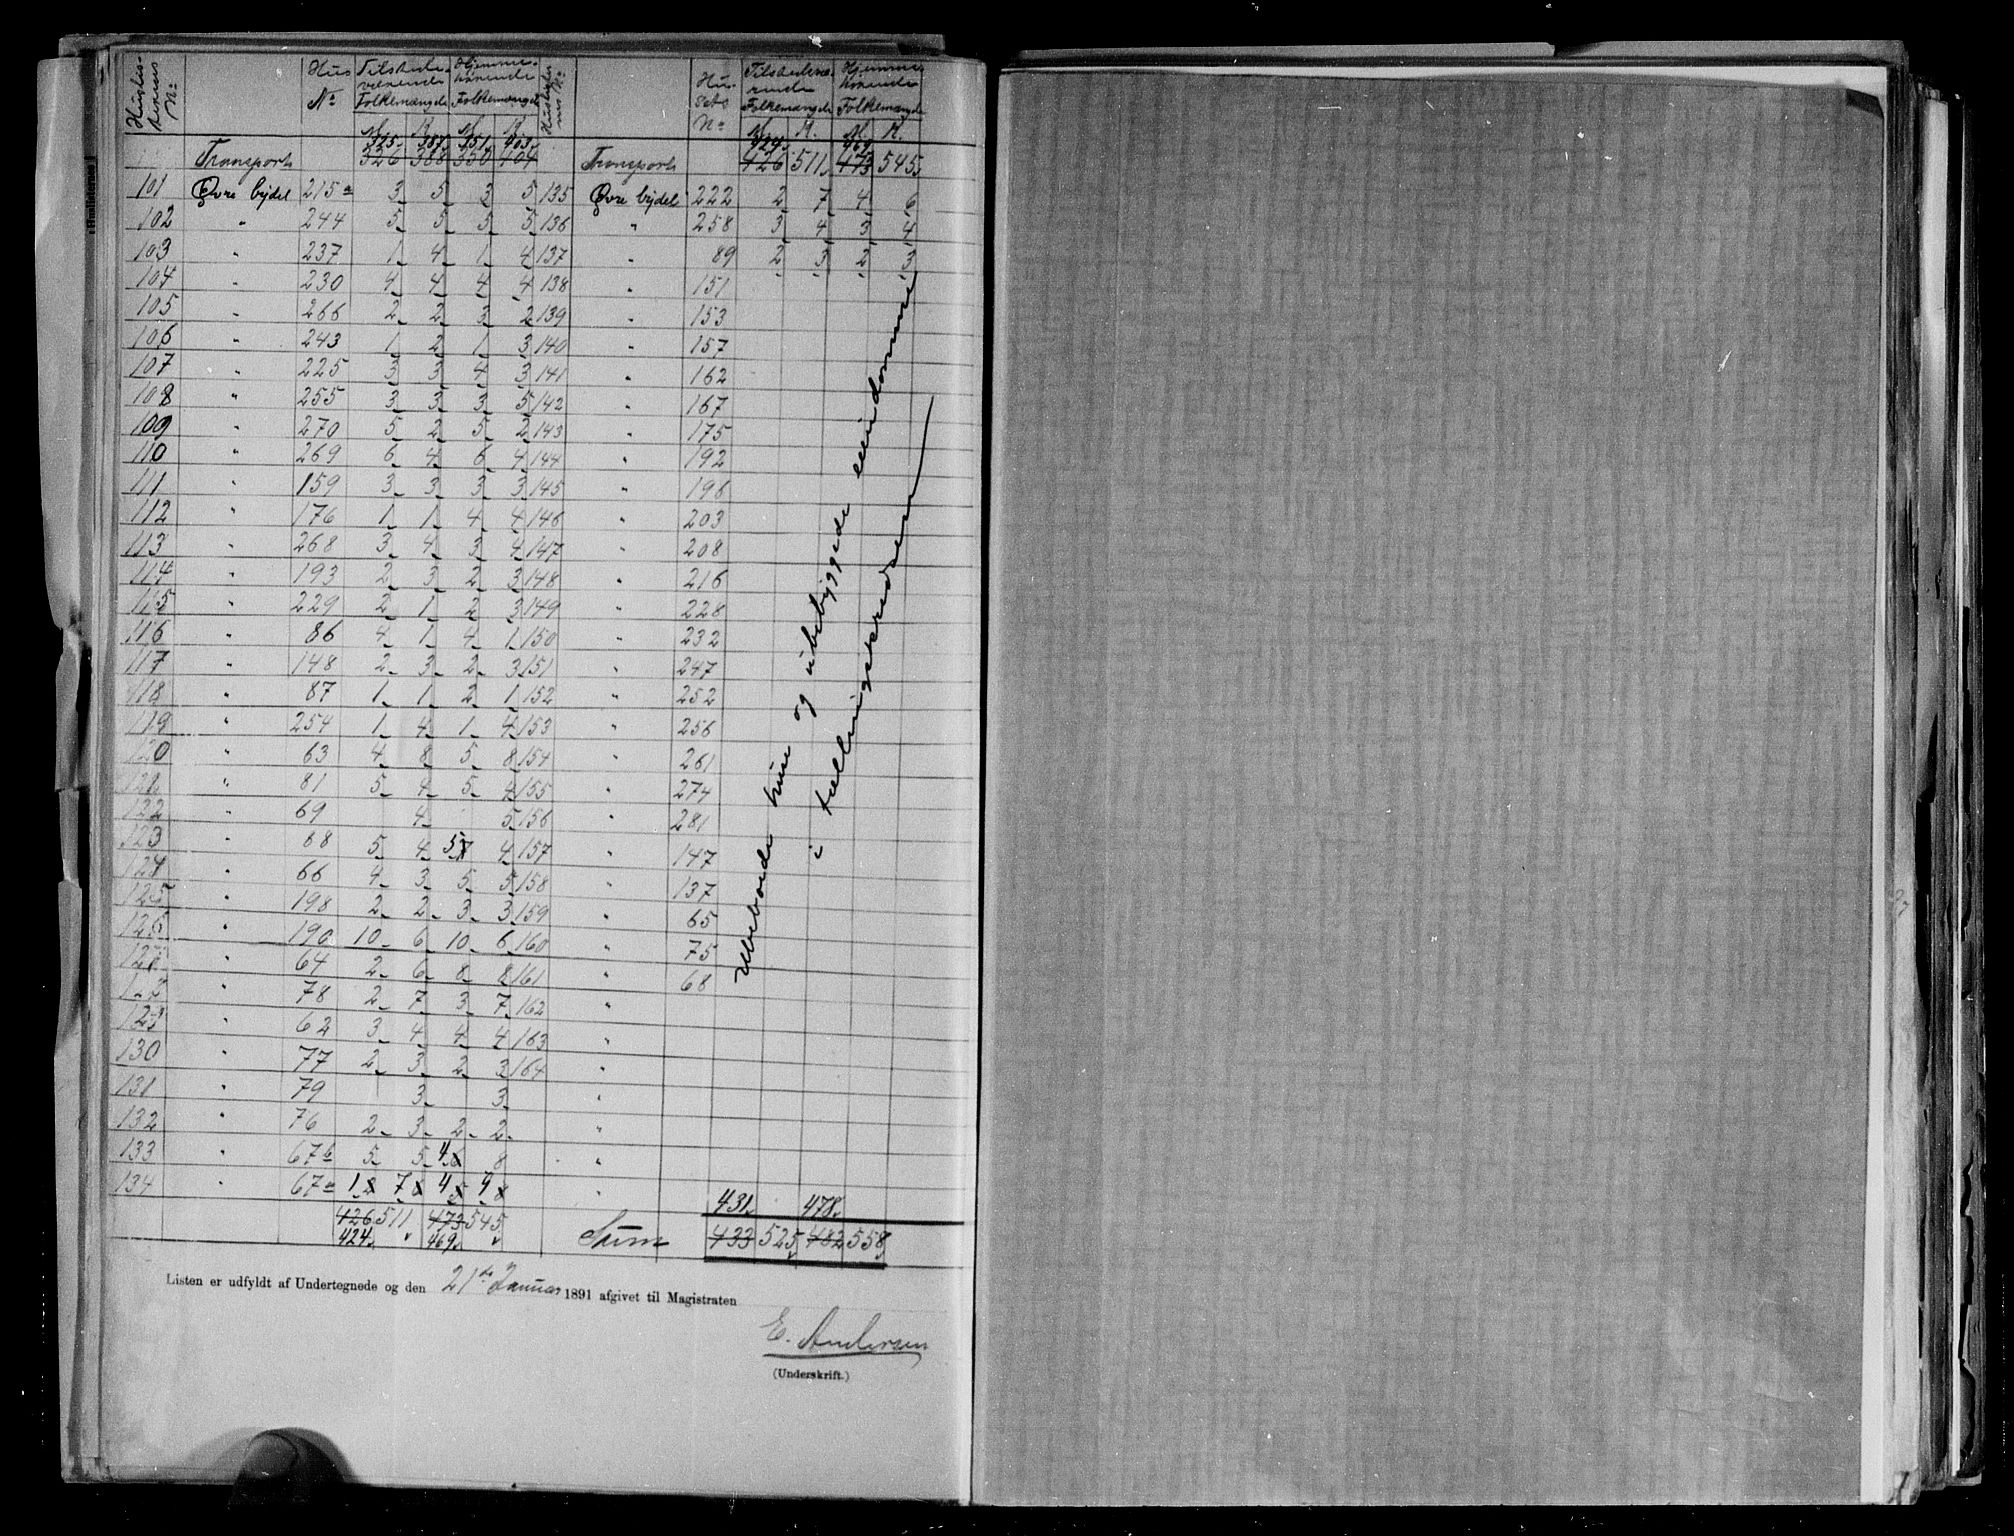 Huslisternes No | | Hus No | Tilstedeværende Folkemængde M. K. | Hjemmehörende Folkemængde M. K. | Huslisternes No | | Husets No | Tilstedeværende Folkemængde M. K. | Hjemmehörende Folkemængde M. K.
325 387 351 403 | 424 469
Transport 326 388 350 404 | Transport 426 511 473 545
101 Øvre bydel 215a 3 5 3 5 | 135 Øvre bydel 222 2 7 4 6
102 " 244 5 5 5 5 | 136 " 258 3 4 3 4
103 " 237 1 4 1 4 | 137 " 89 2 3 2 3
104 " 230 4 4 4 4 | 138 " 151 " " " "
105 " 266 2 2 3 2 | 139 " 153
106 " 243 1 2 1 3 | 140 " 157
107 " 225 3 3 4 3 | 141 " 162
108 " 255 3 3 3 5 | 142 " 167
109 " 270 5 2 5 2 | 143 " 175
110 " 269 6 4 6 4 | 144 " 192
111 " 159 3 3 3 3 | 145 " 196
112 " 176 1 1 4 4 | 146 " 203
113 " 268 3 4 3 4 | 147 " 208
114 " 193 2 3 2 3 | 148 " 216
115 " 229 2 1 2 3 | 149 " 228
116 " 86 4 1 4 1 | 150 " 232
117 " 148 2 3 2 3 | 151 " 247
118 " 87 1 1 2 1 | 152 " 252
119 " 254 1 4 1 4 | 153 " 256
120 " 63 4 8 5 8 | 154 " 261
121 " 81 5 4 5 4 | 155 " 274
122 " 69 4 5 | 156 " 281
123 " 88 5 4 5 4 | 157 " 147
124 " 66 4 3 5 5 | 158 " 137
125 " 198 2 2 3 3 | 159 " 65
126 " 190 10 6 10 6 | 160 " 75
127 " 64 2 6 8 8 | 161 " 68
128 " 78 2 7 3 7 | 162 "
129 " 62 3 4 4 4 | 163
130 " 77 2 3 2 3 | 164 "
131 " 79 3 3 "
132 " 76 2 3 2 2 "
133 " 67b 5 5 4 8 "
134 " 67a 1 7 4 4 "
Ubeboede huse og ubebyggede eiendomme
i tællingskredsen
431 478
426 511 473 545 | Sum 433 525 482 558
424 469
Listen er udfyldt af Undertegnede og den 21de Januar 1891 afgivet til Magistraten
E. Andersen
(Underskrift.)